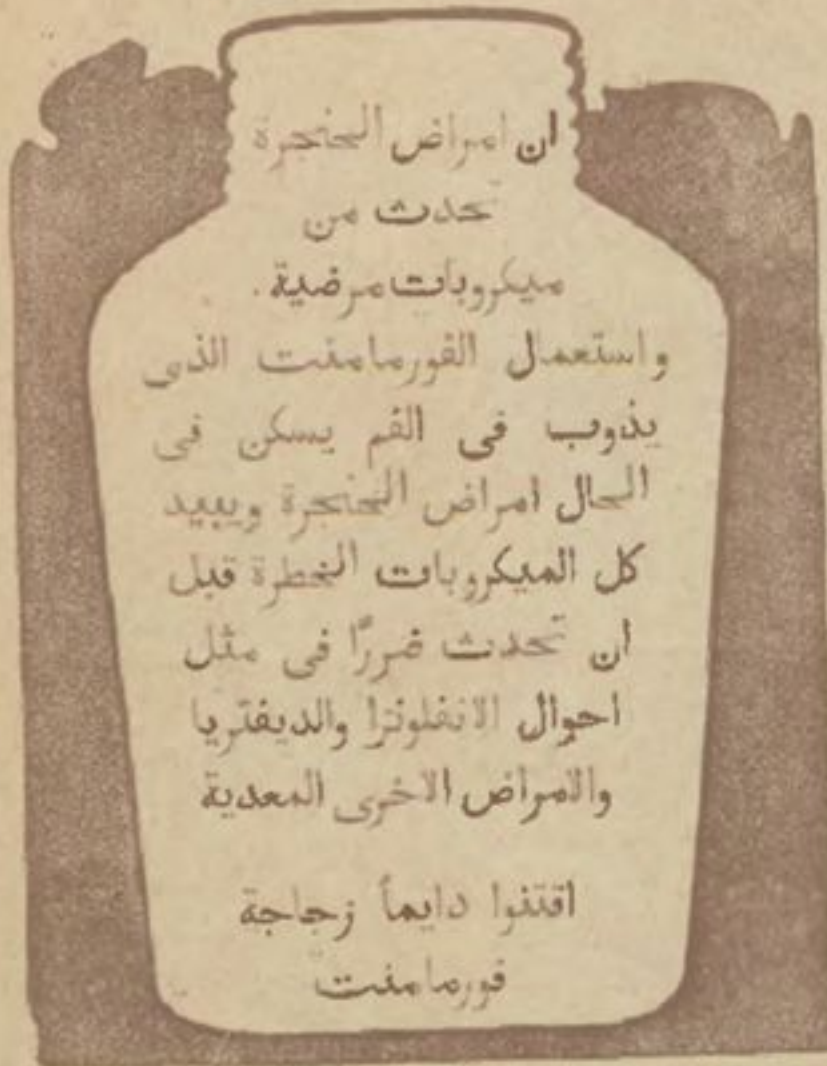 ان امراض الحنجرة
تحدث من
ميكروبات مرضية.
واستعمال الفورمامنت الذى
يذوب فى الفم يسكن فى
الحال امراض الحنجرة ويبيد
كل الميكروبات الخطرة قبل
ان تحدث ضررًا فى مثل
احوال الانفلونزا والديفتريا
والامراض الاخرى المعدية
اقتنوا دايماً زجاجة
فورمامنت